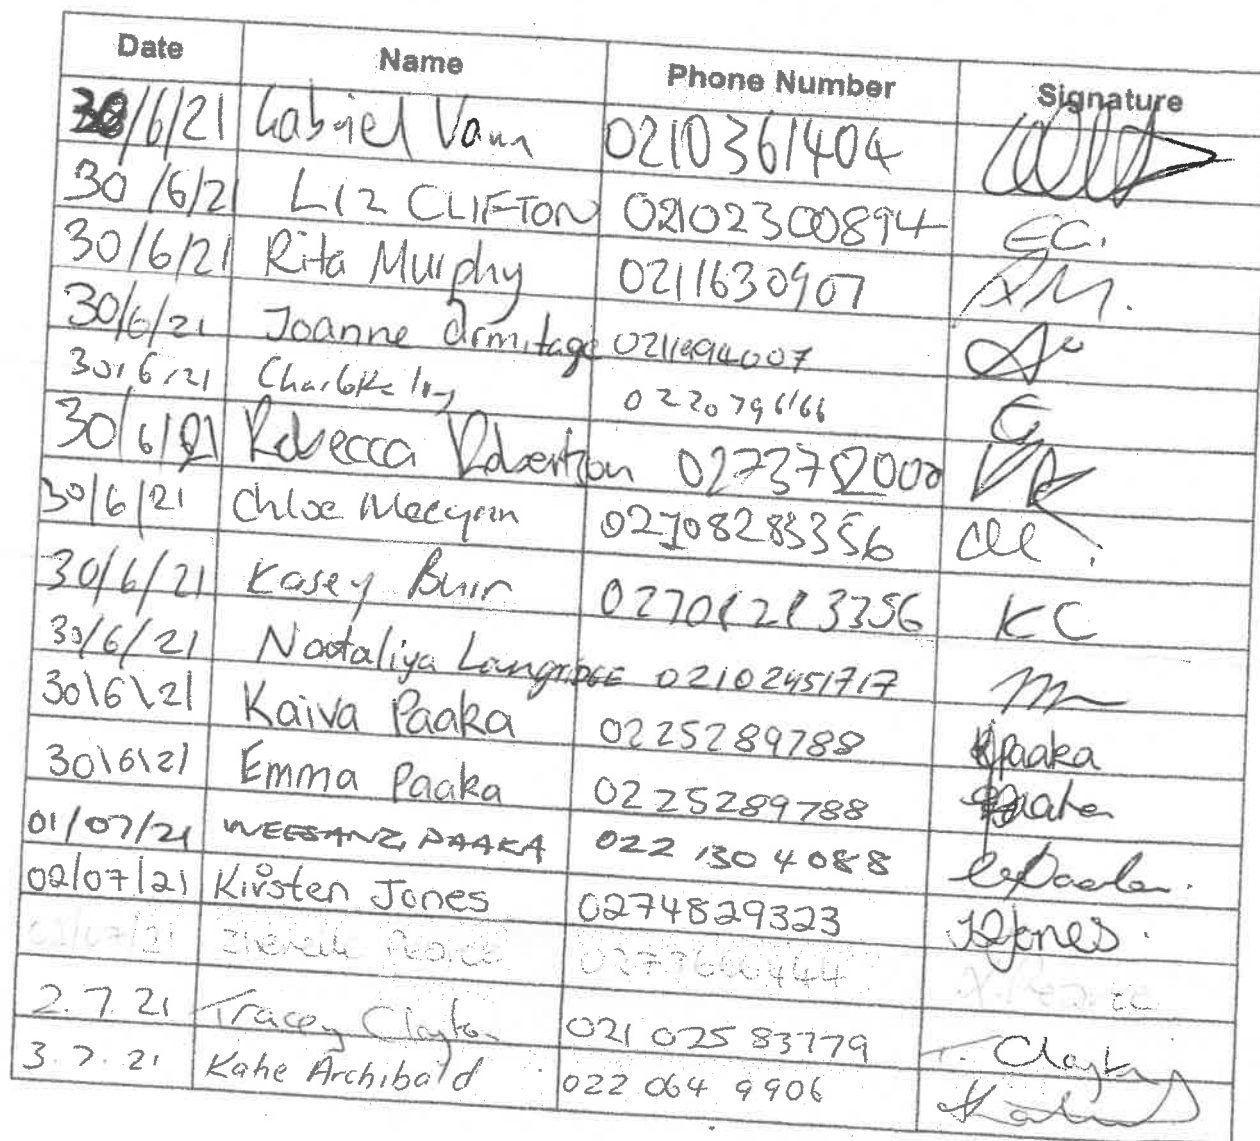 Date Name Phone Number Signature
30/6/21 Gabriel Vann 0210361404
30/6/21 LIZ CLIFTON 02102300894 EC.
30/6/21 Rita Murphy 0211630907 RM.
30/6/21 Joanne Armitage 0211994007
30/6/21 0220796166
30/6/21 Rebecca Robertson 0273752000
30/6/21 Chloe 02708283356
30/6/21 Kasey KC
30/6/21 Nataliya Langridge 02102451717
30\6\21 Kaiva Paaka 0225289788 KPaaka
30\6\21 Emma Paaka 0225289788
01/07/21 PAAKA 022 130 4088
02/07/21 Kirsten Jones 0274829323 KJones.
02/07/21 Pearce
2.7.21 Tracey Clayton 021 025 83779 T. Clayton
3.7.21 Kate Archibald 022 064 9906